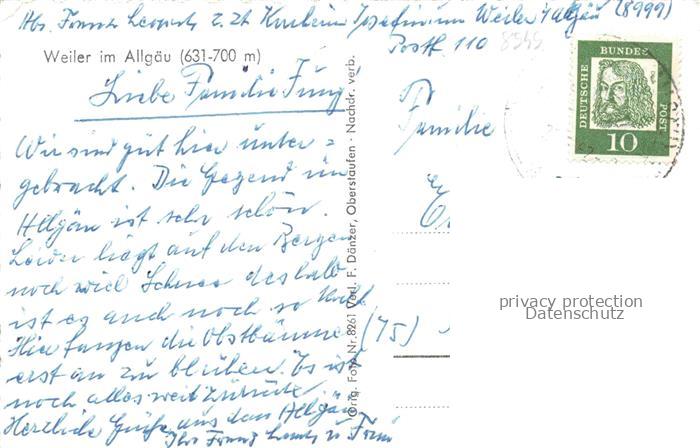 Abs. Franz z. Zt. Kurheim Josefinum Weiler Allgäu (8999)
Postf. 110
8999
Weiler im Allgäu (631-700 m)
Liebe Familie Jung
Wir sind gut hier unter=
gebracht. Die Gegend im
Allgäu ist sehr schön.
Leider liegt auf den Bergen
noch viel Schnee deshalb
ist es auch noch so kalt
Hier fangen die Obstbäume
erst an zu blühen. Es ist
noch alles weit zurück.
Herzliche Grüße aus dem Allgäu
Ihr Franz u Frau
Orig. Foto Nr. 8261 Verl. F. Dänzer, Oberstaufen - Nachdr. verb.
Familie
(75)
DEUTSCHE BUNDESPOST
10
privacy protection
Datenschutz